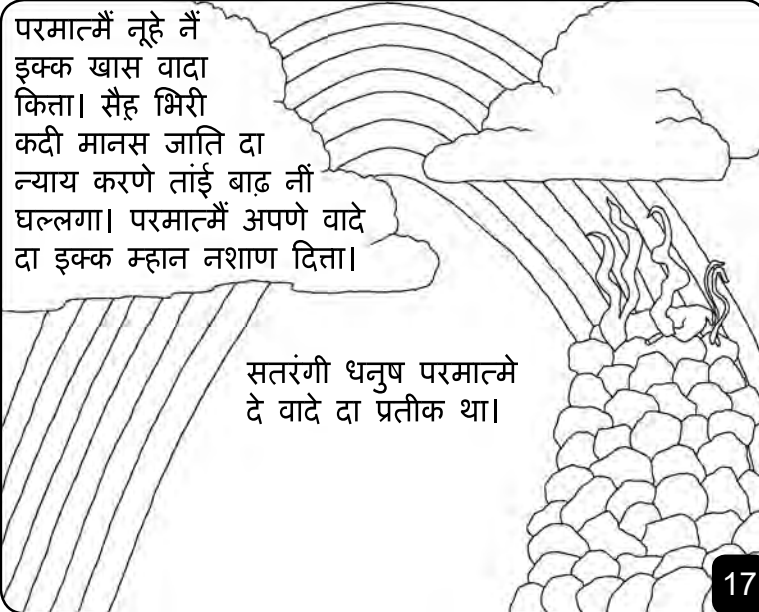 परमात्मैं नूहे नैं
इक्क खास वादा
कित्ता। सैह़ भिरी
कदी मानस जाति दा
न्याय करणे तांई बाढ़ नीं
घल्लगा। परमात्मैं अपणे वादे
दा इक्क म्हान नशाण दित्ता।
सतरंगी धनुष परमात्मे
दे वादे दा प्रतीक था।
17